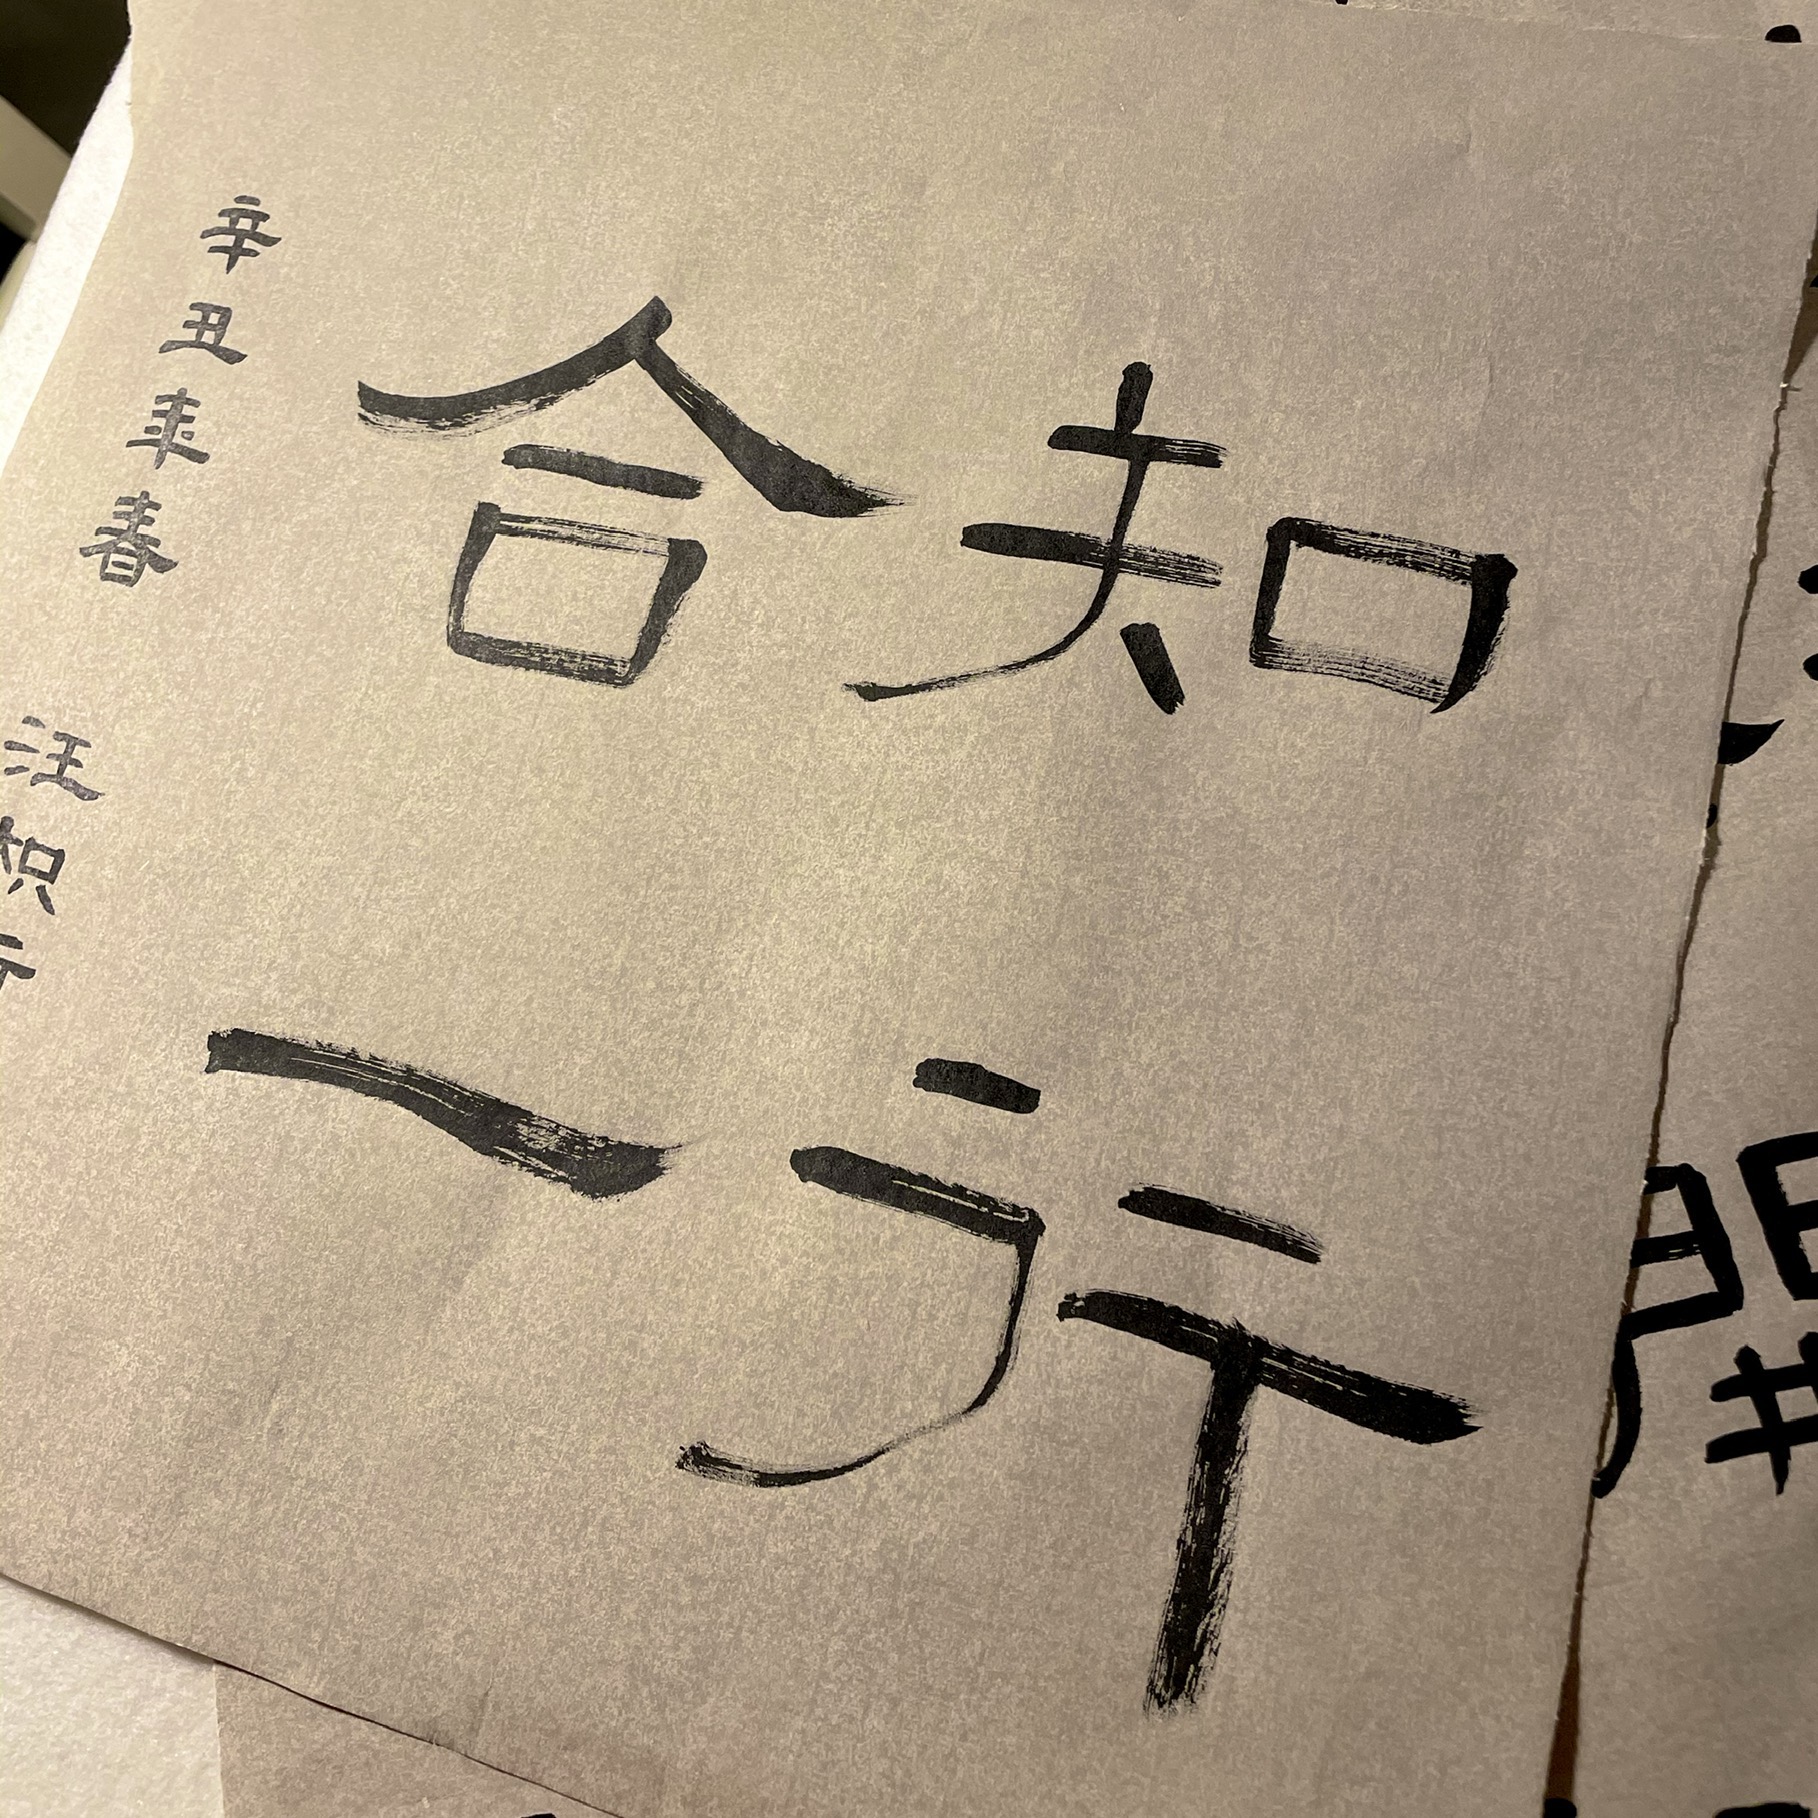 知行
合一
辛丑年春
汪枳